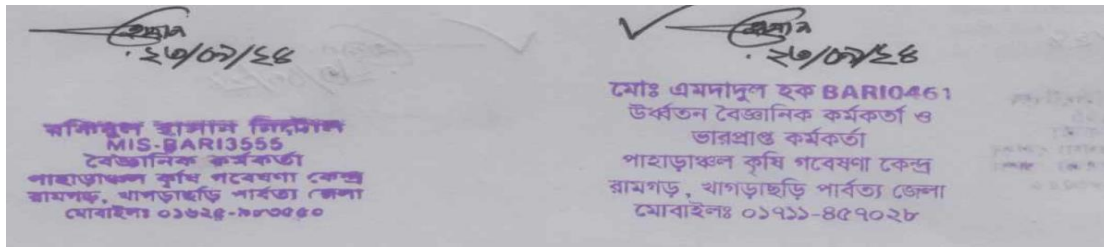 ২৩/০৯/২৪
মিস-BARI3555
বৈজ্ঞানিক কর্মকর্তা
পাহাড়াঞ্চল কৃষি গবেষণা কেন্দ্র
রামগড়, খাগড়াছড়ি পার্বত্য জেলা
২৩/০৯/২৪
মোঃ এমদাদুল হক BARI0461
উর্ধ্বতন বৈজ্ঞানিক কর্মকর্তা ও
ভারপ্রাপ্ত কর্মকর্তা
পাহাড়াঞ্চল কৃষি গবেষণা কেন্দ্র
রামগড়, খাগড়াছড়ি পার্বত্য জেলা
মোবাইলঃ ০১৭১১-৪৫৭০২৮